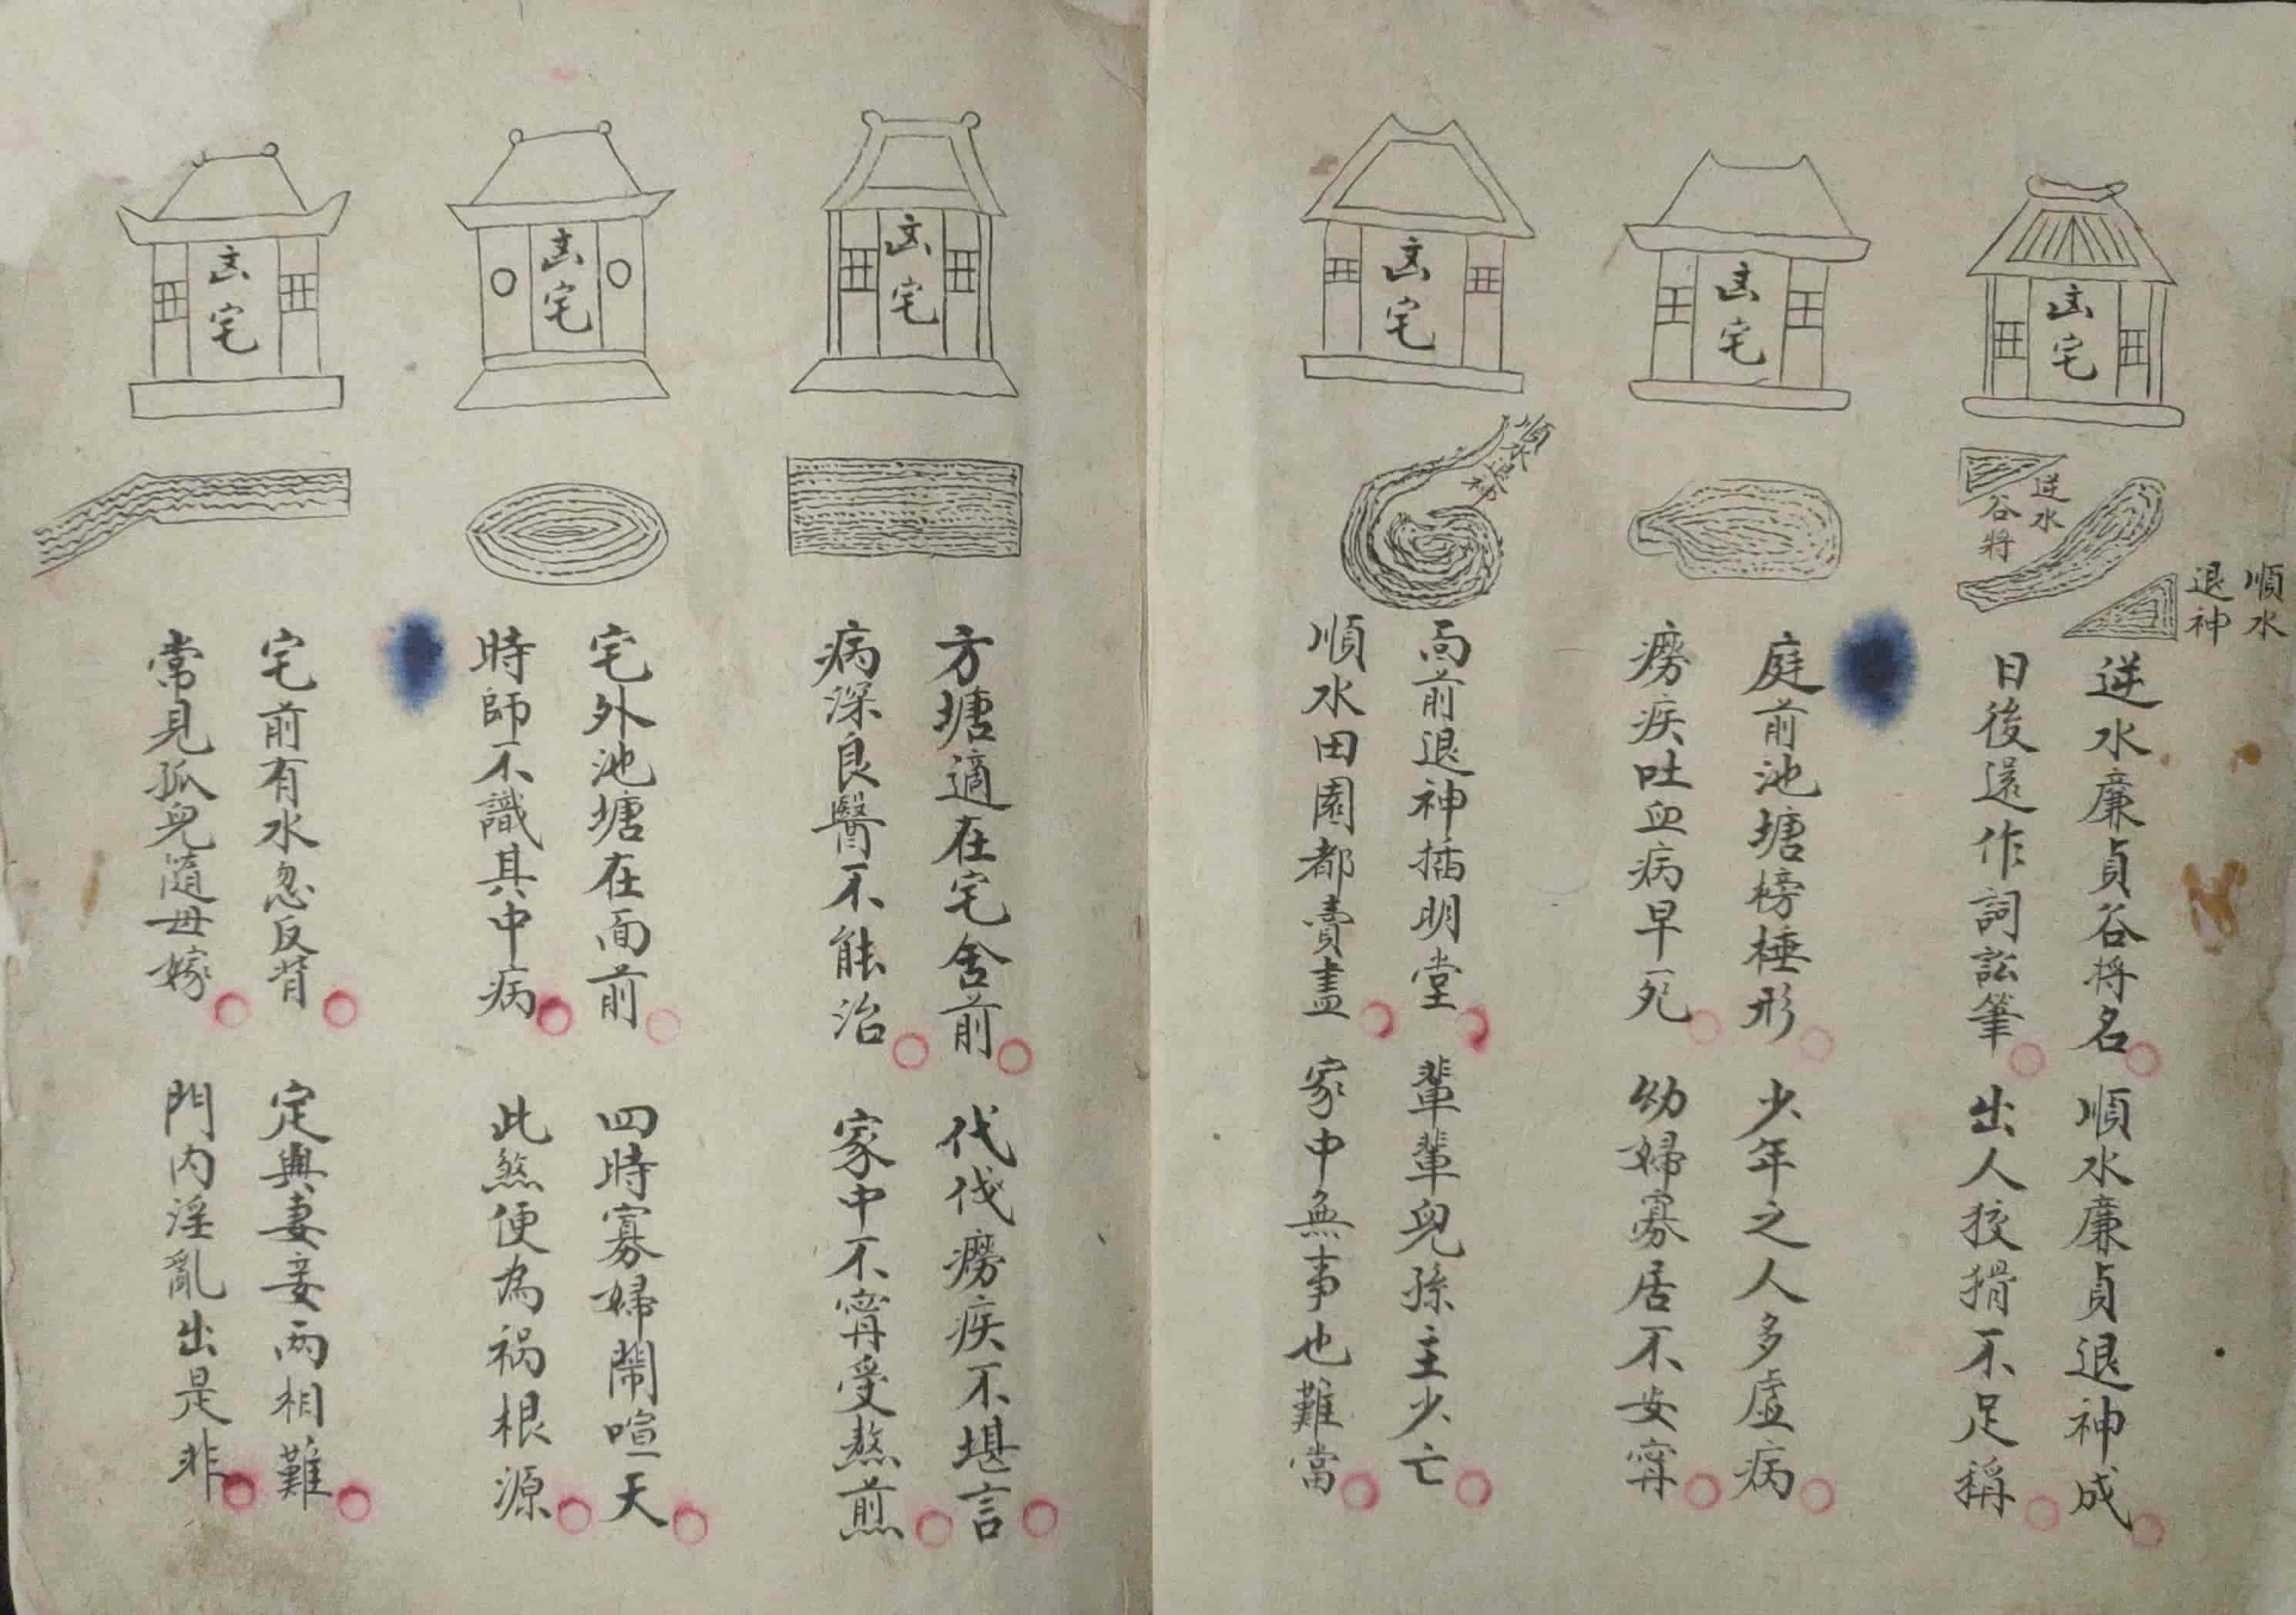 㐫宅
逆水
谷將
順水
退神
逆水廉貞谷將名 順水廉貞退神成
日後還作詞訟筆 出人狡猾不足稱
㐫宅
庭前池塘榜棰形 少年之人多虛病
癆疾吐血病早死 幼婦寡居不安寧
㐫宅
順水
退神
面前退神插明堂 輩輩兒孫主少亡
順水田園都賣盡 家中無事也難當
㐫宅
方塘適在宅舍前 代代癆疾不堪言
病深良醫不能治 家中不寧受熬煎
㐫宅
宅外池塘在面前 四時寡婦鬧喧天
時師不識其中病 此煞便為禍根源
㐫宅
宅前有水忽反背 定與妻妾兩相難
常見孤兒隨母嫁 門内淫亂出是非